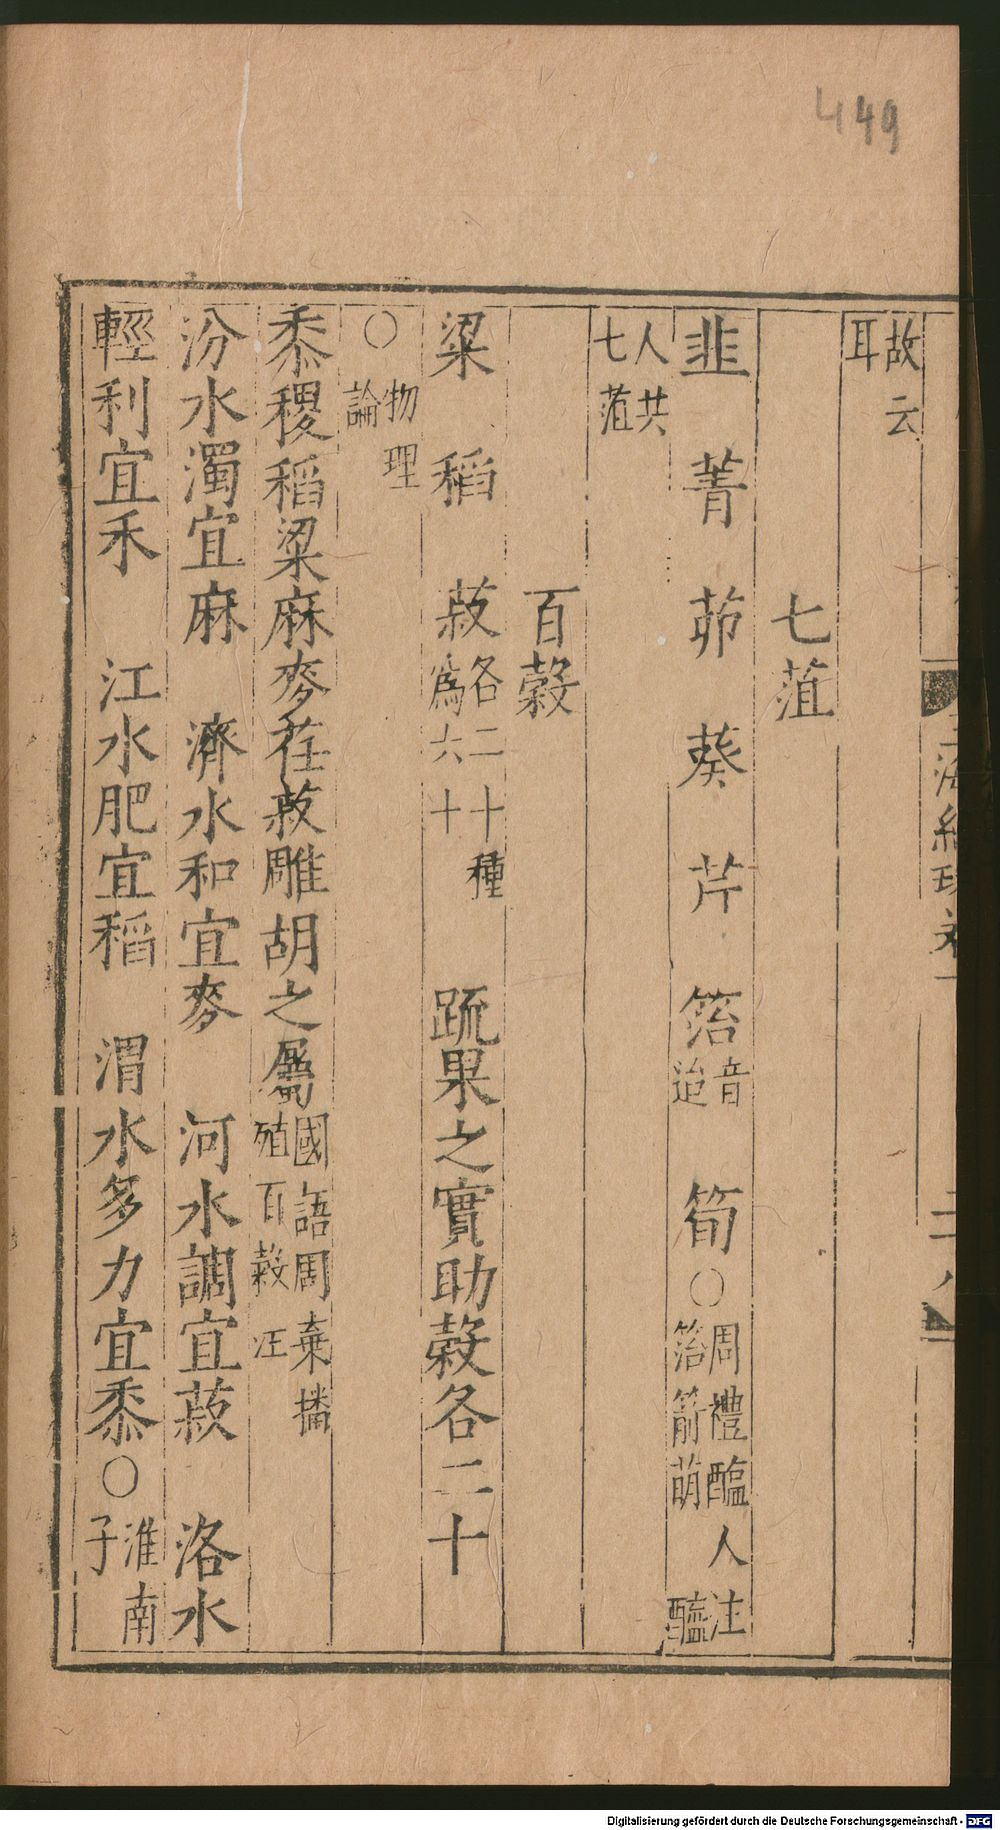 449
故云
耳
七菹
韭 菁 茆 葵 芹 箈音迨 筍○周禮醢人注箈箭萌醢
人共
七菹
百穀
粱 稻 菽各二十種爲六十 蔬果之實助穀各二十
○物理論
黍稷稻粱麻麥荏菽雕胡之屬國語周棄播殖百穀注
汾水濁宜麻 濟水和宜麥 河水調宜菽 洛水
輕利宜禾 江水肥宜稻 渭水多力宜黍○淮南子
Digitalisierung gefördert durch die Deutsche Forschungsgemeinschaft - DFG